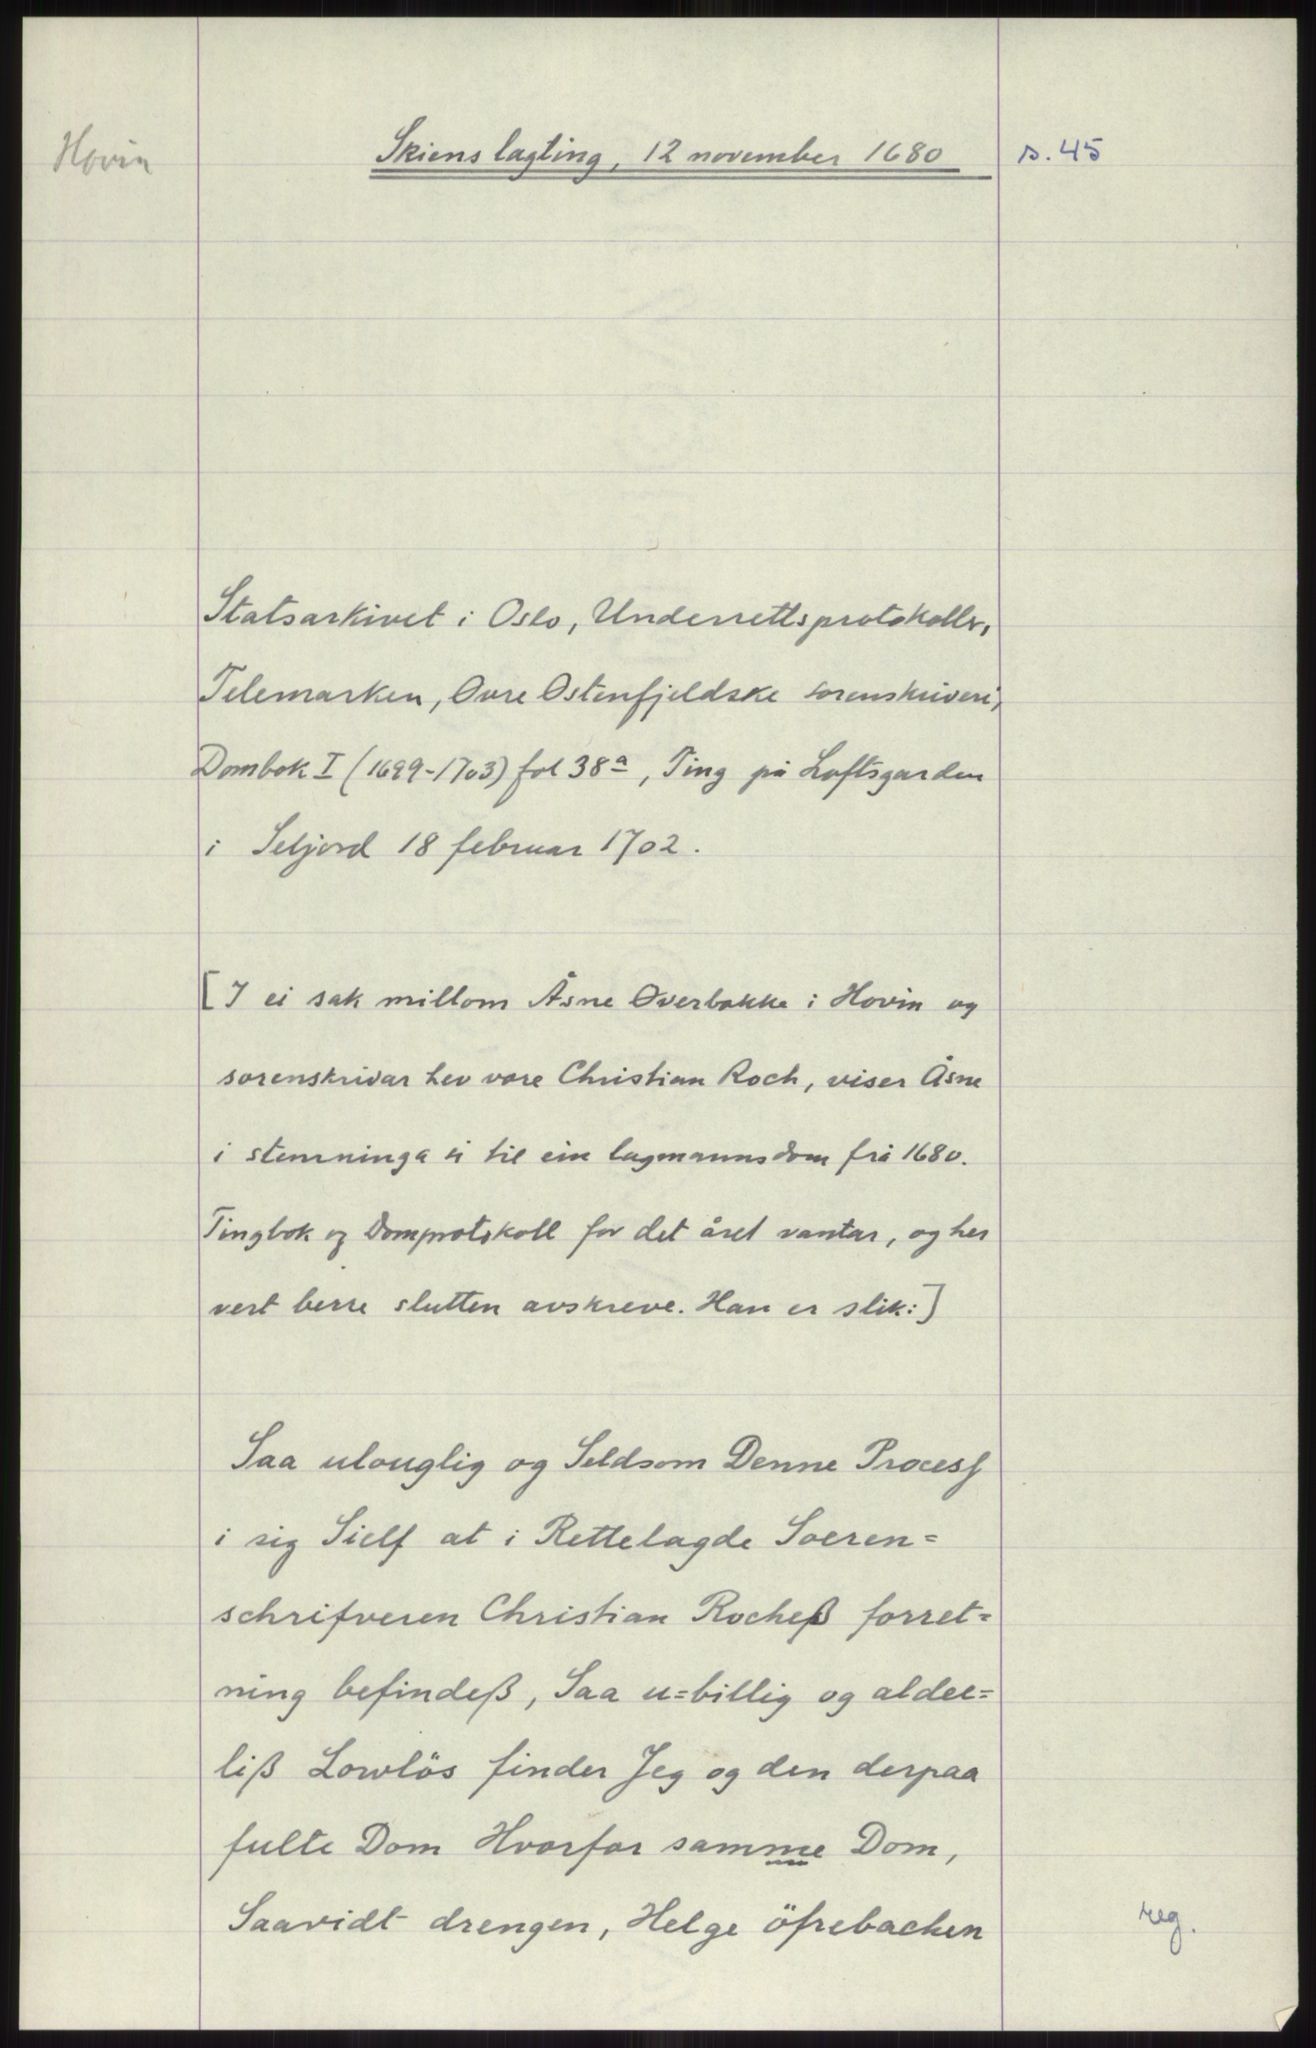 Hovin
Skiens lagting, 12 november 1680
s. 45
Statsarkivet i Oslo, Underrettsprotokoller,
Telemarken, Øvre Østenfjeldske sorenskriveri,
Dombok I (1699-1703) fol 38a, Ting på Loftsgarden
i Seljord 18 februar 1702.
[I ei sak millom Åsne Øverbakke i Hovin og
sorenskrivar hev vore Christian Roch, viser Åsne
i stemninga si til ein lagmannsdom frå 1680.
Tingbok og Domprotokoll for det året vantar, og her
vert berre slutten avskreve. Han er slik:]
Saa ulouglig og Seldsom Denne Process
i sig Sielf at i Rettelagde Soeren=
schrifveren Christian Rocheß forret=
ning befindeß, Saa u=billig og aldee=
liß Lowlös finder Jeg og den derpaa
fulte Dom Hvorfor samme Dom,
Saavidt drengen, Helge öfrebachen
reg.